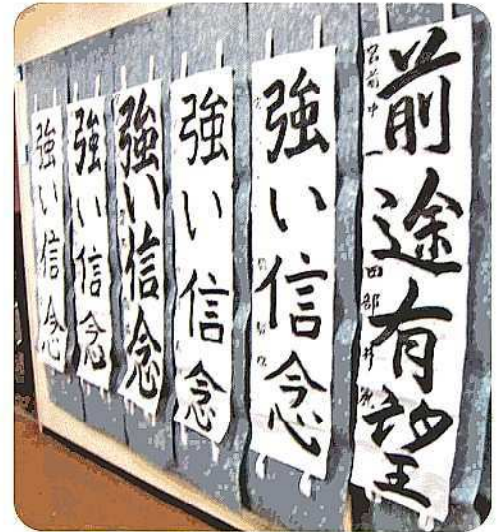 前途有望
強い信念
強い信念
強い信念
強い信念
強い信念